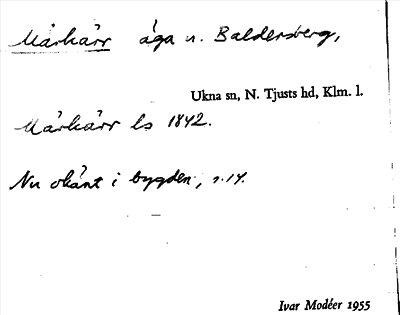 Mårkärr äga n. Baldersberg,
Ukna sn, N. Tjusts hd, Klm. l.
Mårkärr ls 1842.
Nu okänt i bygden, s. 14.
Ivar Modéer 1955